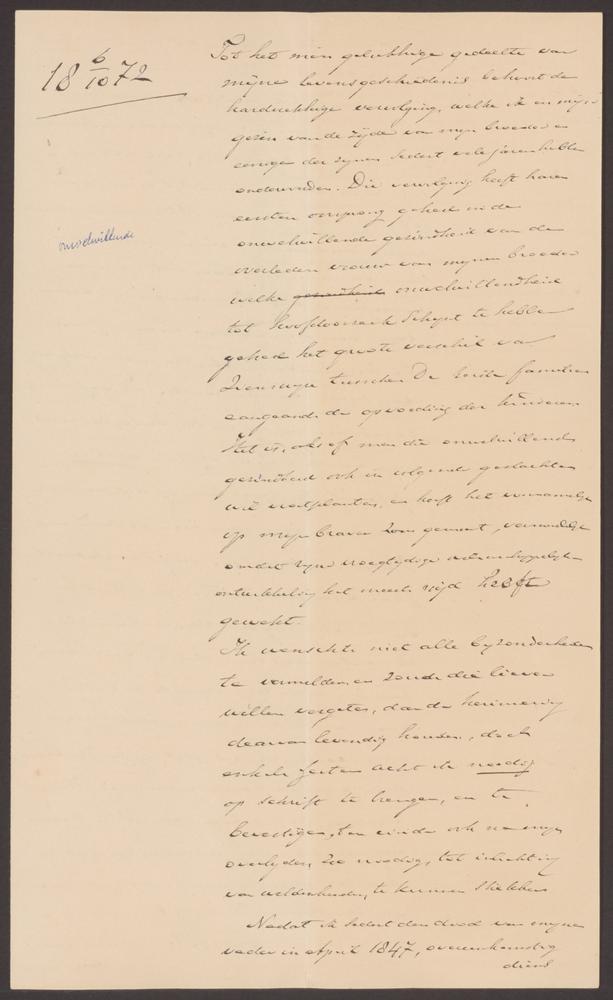 18 6/10 72
onwelwillende
Tot het min gelukkige gedeelte van
mijne levensgeschiedenis behoort de
hardnekkige vervolging, welke ik en mijn
gezin van de zijde van mijn broeder en
eenige der zijnen sedert vele jaren hebben
ondervonden. Die vervolging heeft haren
eersten oorsprong gehad in de
onwelwillende gezindheid van de
overleden vrouw van mijnen broeder
welke gezindheid onwelwillendheid
tot hoofdoorzaak schijnt te hebben
gehad het groote verschil van
zienswijze tusschen De beide familien
aangaande de opvoeding der kinderen.
Het is, alsof men die onwelwillende
gezindheid ook in volgende geslachten
wil voortplanten, en heeft het voornamelijk
op mijn braven zoon gemunt, vermoedelijk
omdat zijne vroegtijdige wetenschappelijke
ontwikkeling het meest nijd heeft
gewekt.
Ik wenschte niet alle bijzonderheden
te vermelden en zoude die liever
willen vergeten, dan de herinnering
daaraan levendig houden, doch
enkele feiten acht ik noodig
op schrift te brengen, en te
bevestigen, ten einde ook na mijn
overlijden, zoo noodig, tot inlichting
van weldenkenden, te kunnen strekken
Nadat ik sedert den dood van mijnen
vader in April 1847, overeenkomstig
diens